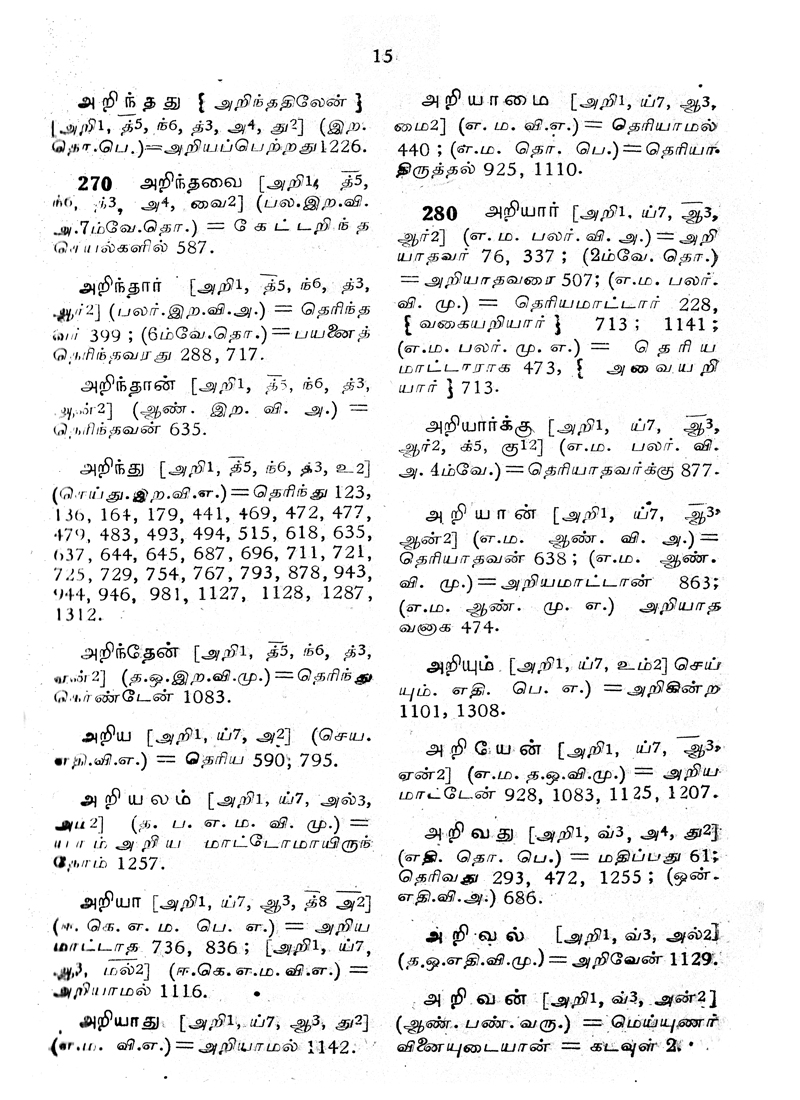 15
அறிந்தது { அறிந்ததிலேன் }
[அறி1, த்5, ந்6, த்3, அ4, து2] (இற.
தொ.பெ.)=அறியப்பெற்றது 1226.
270 அறிந்தவை [அறி1, த்5,
ந்6, த்3, அ4, வை2] (பல.இற.வி.
அ.7ம்வே.தொ.) = கேட்டறிந்த
செயல்களில் 587.
அறிந்தார் [அறி1, த்5, ந்6, த்3,
ஆர்2] (பலர்.இற.வி.அ.) = தெரிந்த
வர் 399 ; (6ம்வே.தொ.)=பயனைத்
தெரிந்தவரது 288, 717.
அறிந்தான் [அறி1, த்5, ந்6, த்3,
ஆன்2] (ஆண். இற. வி. அ.) =
தெரிந்தவன் 635.
அறிந்து [அறி1, த்5, ந்6, த்3, உ2]
(செய்து.இற.வி.எ.)=தெரிந்து 123,
136, 164, 179, 441, 469, 472, 477,
479, 483, 493, 494, 515, 618, 635,
637, 644, 645, 687, 696, 711, 721,
725, 729, 754, 767, 793, 878, 943,
944, 946, 981, 1127, 1128, 1287,
1312.
அறிந்தேன் [அறி1, த்5, ந்6, த்3,
ஏன்2] (த.ஒ.இற.வி.மு.)=தெரிந்து
கொண்டேன் 1083.
அறிய [அறி1, ய்7, அ2] (செய.
எதி.வி.எ.) = தெரிய 590, 795.
அறியலம் [அறி1, ய்7, அல்3,
அம்2] (த. ப. எ. ம. வி. மு.) =
யாம் அறிய மாட்டோமாயிருந்
தோம் 1257.
அறியா [அறி1, ய்7, ஆ3, த்8 அ2]
(ஈ. கெ. எ. ம. பெ. எ.) = அறிய
மாட்டாத 736, 836 ; [அறி1, ய்7,
ஆ3, மல்2] (ஈ.கெ.எ.ம.வி.எ.) =
அறியாமல் 1116.
அறியாது [அறி1, ய்7, ஆ3, து2]
(எ.ம. வி.எ.)=அறியாமல் 1142.
அறியாமை [அறி1, ய்7, ஆ3,
மை2] (எ. ம. வி.எ.)= தெரியாமல்
440 ; (எ.ம. தொ. பெ.)=தெரியா
திருத்தல் 925, 1110.
280 அறியார் [அறி1, ய்7, ஆ3,
ஆர்2] (எ. ம. பலர். வி. அ.)=அறி
யாதவர் 76, 337 ; (2ம்வே. தொ.)
=அறியாதவரை 507; (எ.ம. பலர்.
வி. மு.) = தெரியமாட்டார் 228,
{ வகையறியார் } 713 ; 1141 ;
(எ.ம. பலர். மு. எ.) = தெரிய
மாட்டாராக 473, { அவையறி
யார் } 713.
அறியார்க்கு [அறி1, ய்7, ஆ3,
ஆர்2, க்5, கு12] (எ.ம. பலர். வி.
அ. 4ம்வே.)=தெரியாதவர்க்கு 877.
அறியான் [அறி1, ய்7, ஆ3,
ஆன்2] (எ.ம. ஆண். வி. அ.)=
தெரியாதவன் 638 ; (எ.ம. ஆண்.
வி. மு.)=அறியமாட்டான் 863;
(எ.ம. ஆண். மு. எ.) அறியாத
வனாக 474.
அறியும் [அறி1, ய்7, உம்2] செய்
யும். எதி. பெ. எ.) =அறிகின்ற
1101, 1308.
அறியேன் [அறி1, ய்7, ஆ3,
ஏன்2] (எ.ம. த.ஒ.வி.மு.) = அறிய
மாட்டேன் 928, 1083, 1125, 1207.
அறிவது [அறி1, வ்3, அ4, து2]
(எதி. தொ. பெ.) = மதிப்பது 61;
தெரிவது 293, 472, 1255 ; (ஒன்.
எதி.வி.அ.) 686.
அறிவல் [அறி1, வ்3, அல்2]
(த.ஒ.எதி.வி.மு.)=அறிவேன் 1129.
அறிவன் [அறி1, வ்3, அன்2]
(ஆண். பண். வரு.) = மெய்யுணர்
வினையுடையான் = கடவுள் 2.